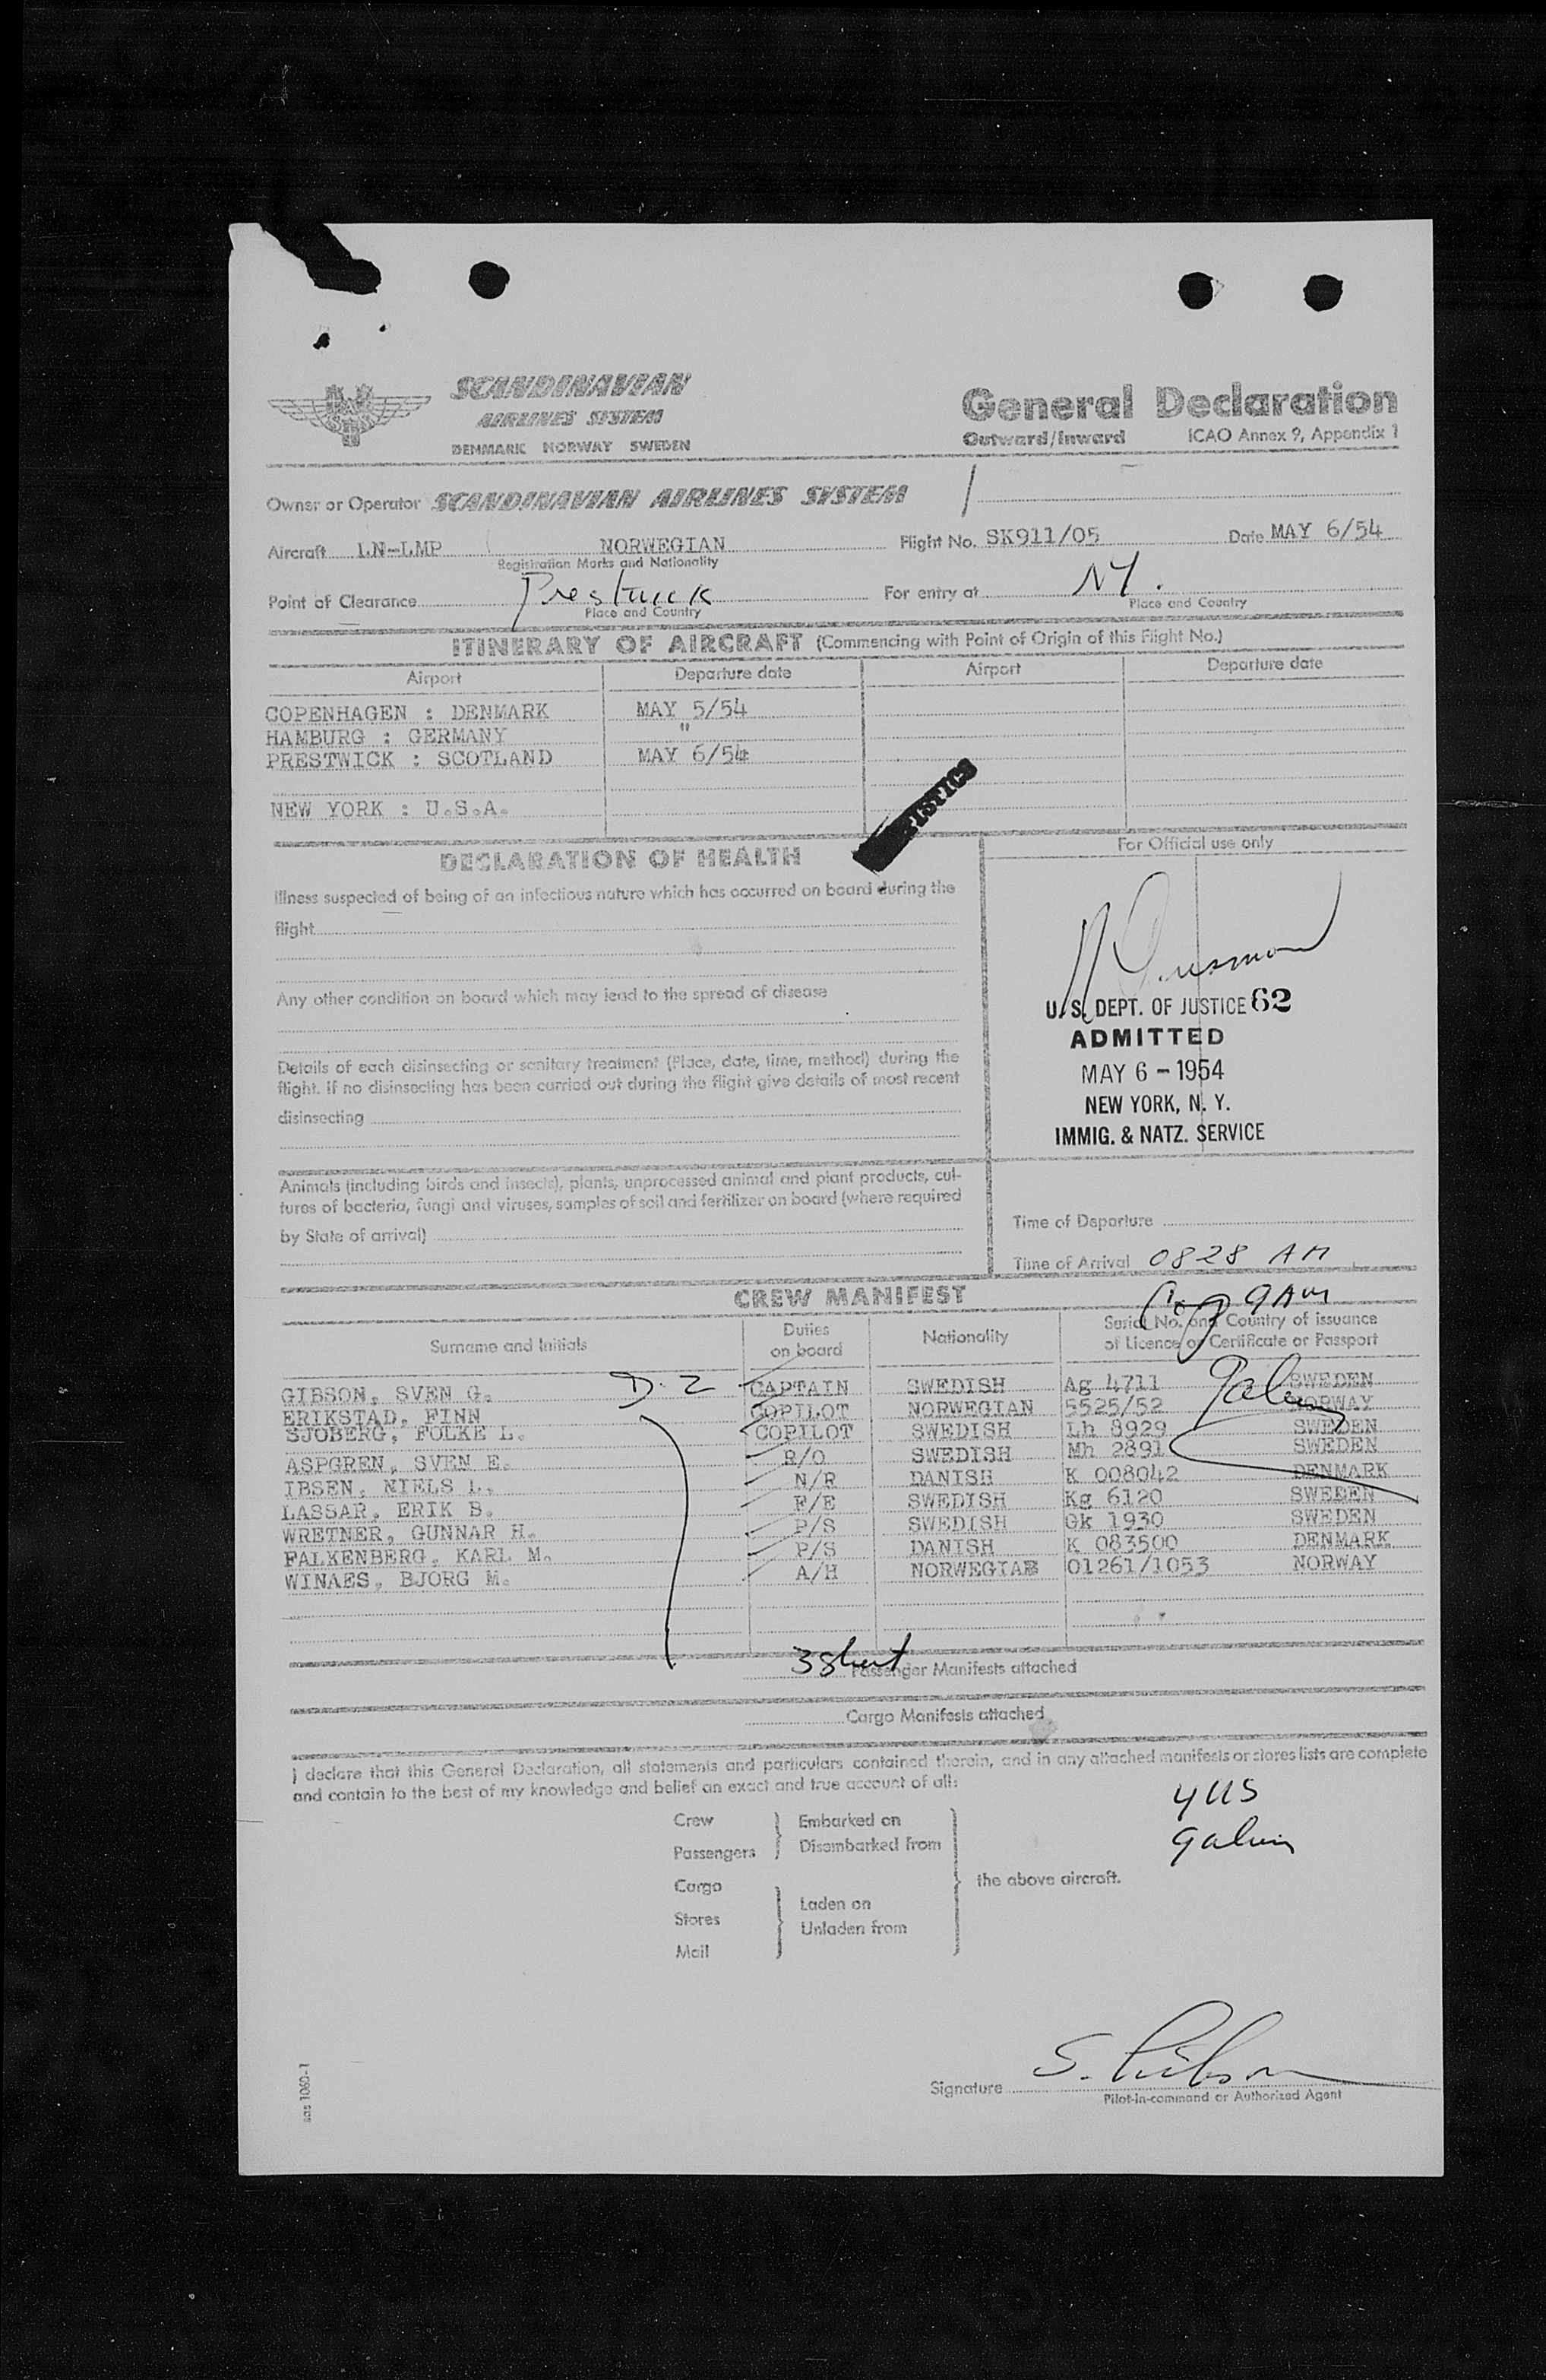 SCANDINAVIAN
AIRLINES SYSTEM
DENMARK NORWAY SWEDEN
General Declaration
Outward/Inward ICAO Annex 9, Appendix 1
Owner or Operator SCANDINAVIAN AIRLINES SYSTEM
Aircraft LN-LMP NORWEGIAN Flight No. SK911/05 Date MAY 6/54
Registration Marks and Nationality
Point of Clearance Prestwick For entry at NY.
Place and Country Place and Country
ITINERARY OF AIRCRAFT (Commencing with Point of Origin of this Flight No.)
Airport Departure date Airport Departure date
COPENHAGEN : DENMARK MAY 5/54
HAMBURG : GERMANY "
PRESTWICK : SCOTLAND MAY 6/54
NEW YORK : U.S.A.
DECLARATION OF HEALTH
Illness suspected of being of an infectious nature which has occurred on board during the
flight
Any other condition on board which may lead to the spread of disease
Details of each disinsecting or sanitary treatment (Place, date, time, method) during the
flight. If no disinsecting has been carried out during the flight give details of most recent
disinsecting
Animals (including birds and insects), plants, unprocessed animal and plant products, cul-
tures of bacteria, fungi and viruses, samples of soil and fertilizer on board (where required
by State of arrival)
For Official use only
U.S. DEPT. OF JUSTICE 62
ADMITTED
MAY 6 - 1954
NEW YORK, N. Y.
IMMIG. & NATZ. SERVICE
Time of Departure
Time of Arrival 0828 AM
9 AM
CREW MANIFEST
Surname and Initials Duties on board Nationality Serial No. and Country of issuance of Licence or Certificate or Passport
D-2
GIBSON, SVEN G. CAPTAIN SWEDISH Ag 4711 SWEDEN
ERIKSTAD, FINN COPILOT NORWEGIAN 5525/52 NORWAY
SJOBERG, FOLKE L. COPILOT SWEDISH Lh 8929 SWEDEN
ASPGREN, SVEN E. R/O SWEDISH Mh 2891 SWEDEN
IBSEN, NIELS L. N/R DANISH K 008042 DENMARK
LASSAR, ERIK B. F/E SWEDISH Kg 6120 SWEDEN
WRETNER, GUNNAR H. P/S SWEDISH Gk 1930 SWEDEN
FALKENBERG, KARL M. P/S DANISH K 083500 DENMARK
WINAES, BJORG M. A/H NORWEGIAN 01261/1053 NORWAY
3 sheet Passenger Manifests attached
Cargo Manifests attached
I declare that this General Declaration, all statements and particulars contained therein, and in any attached manifests or stores lists are complete
and contain to the best of my knowledge and belief an exact and true account of all:
4 US
Galvin
Crew Embarked on
Passengers Disembarked from
Cargo the above aircraft.
Stores Laden on
Mail Unladen from
sas 1060-1
Signature S. Gibson
Pilot-in-command or Authorized Agent